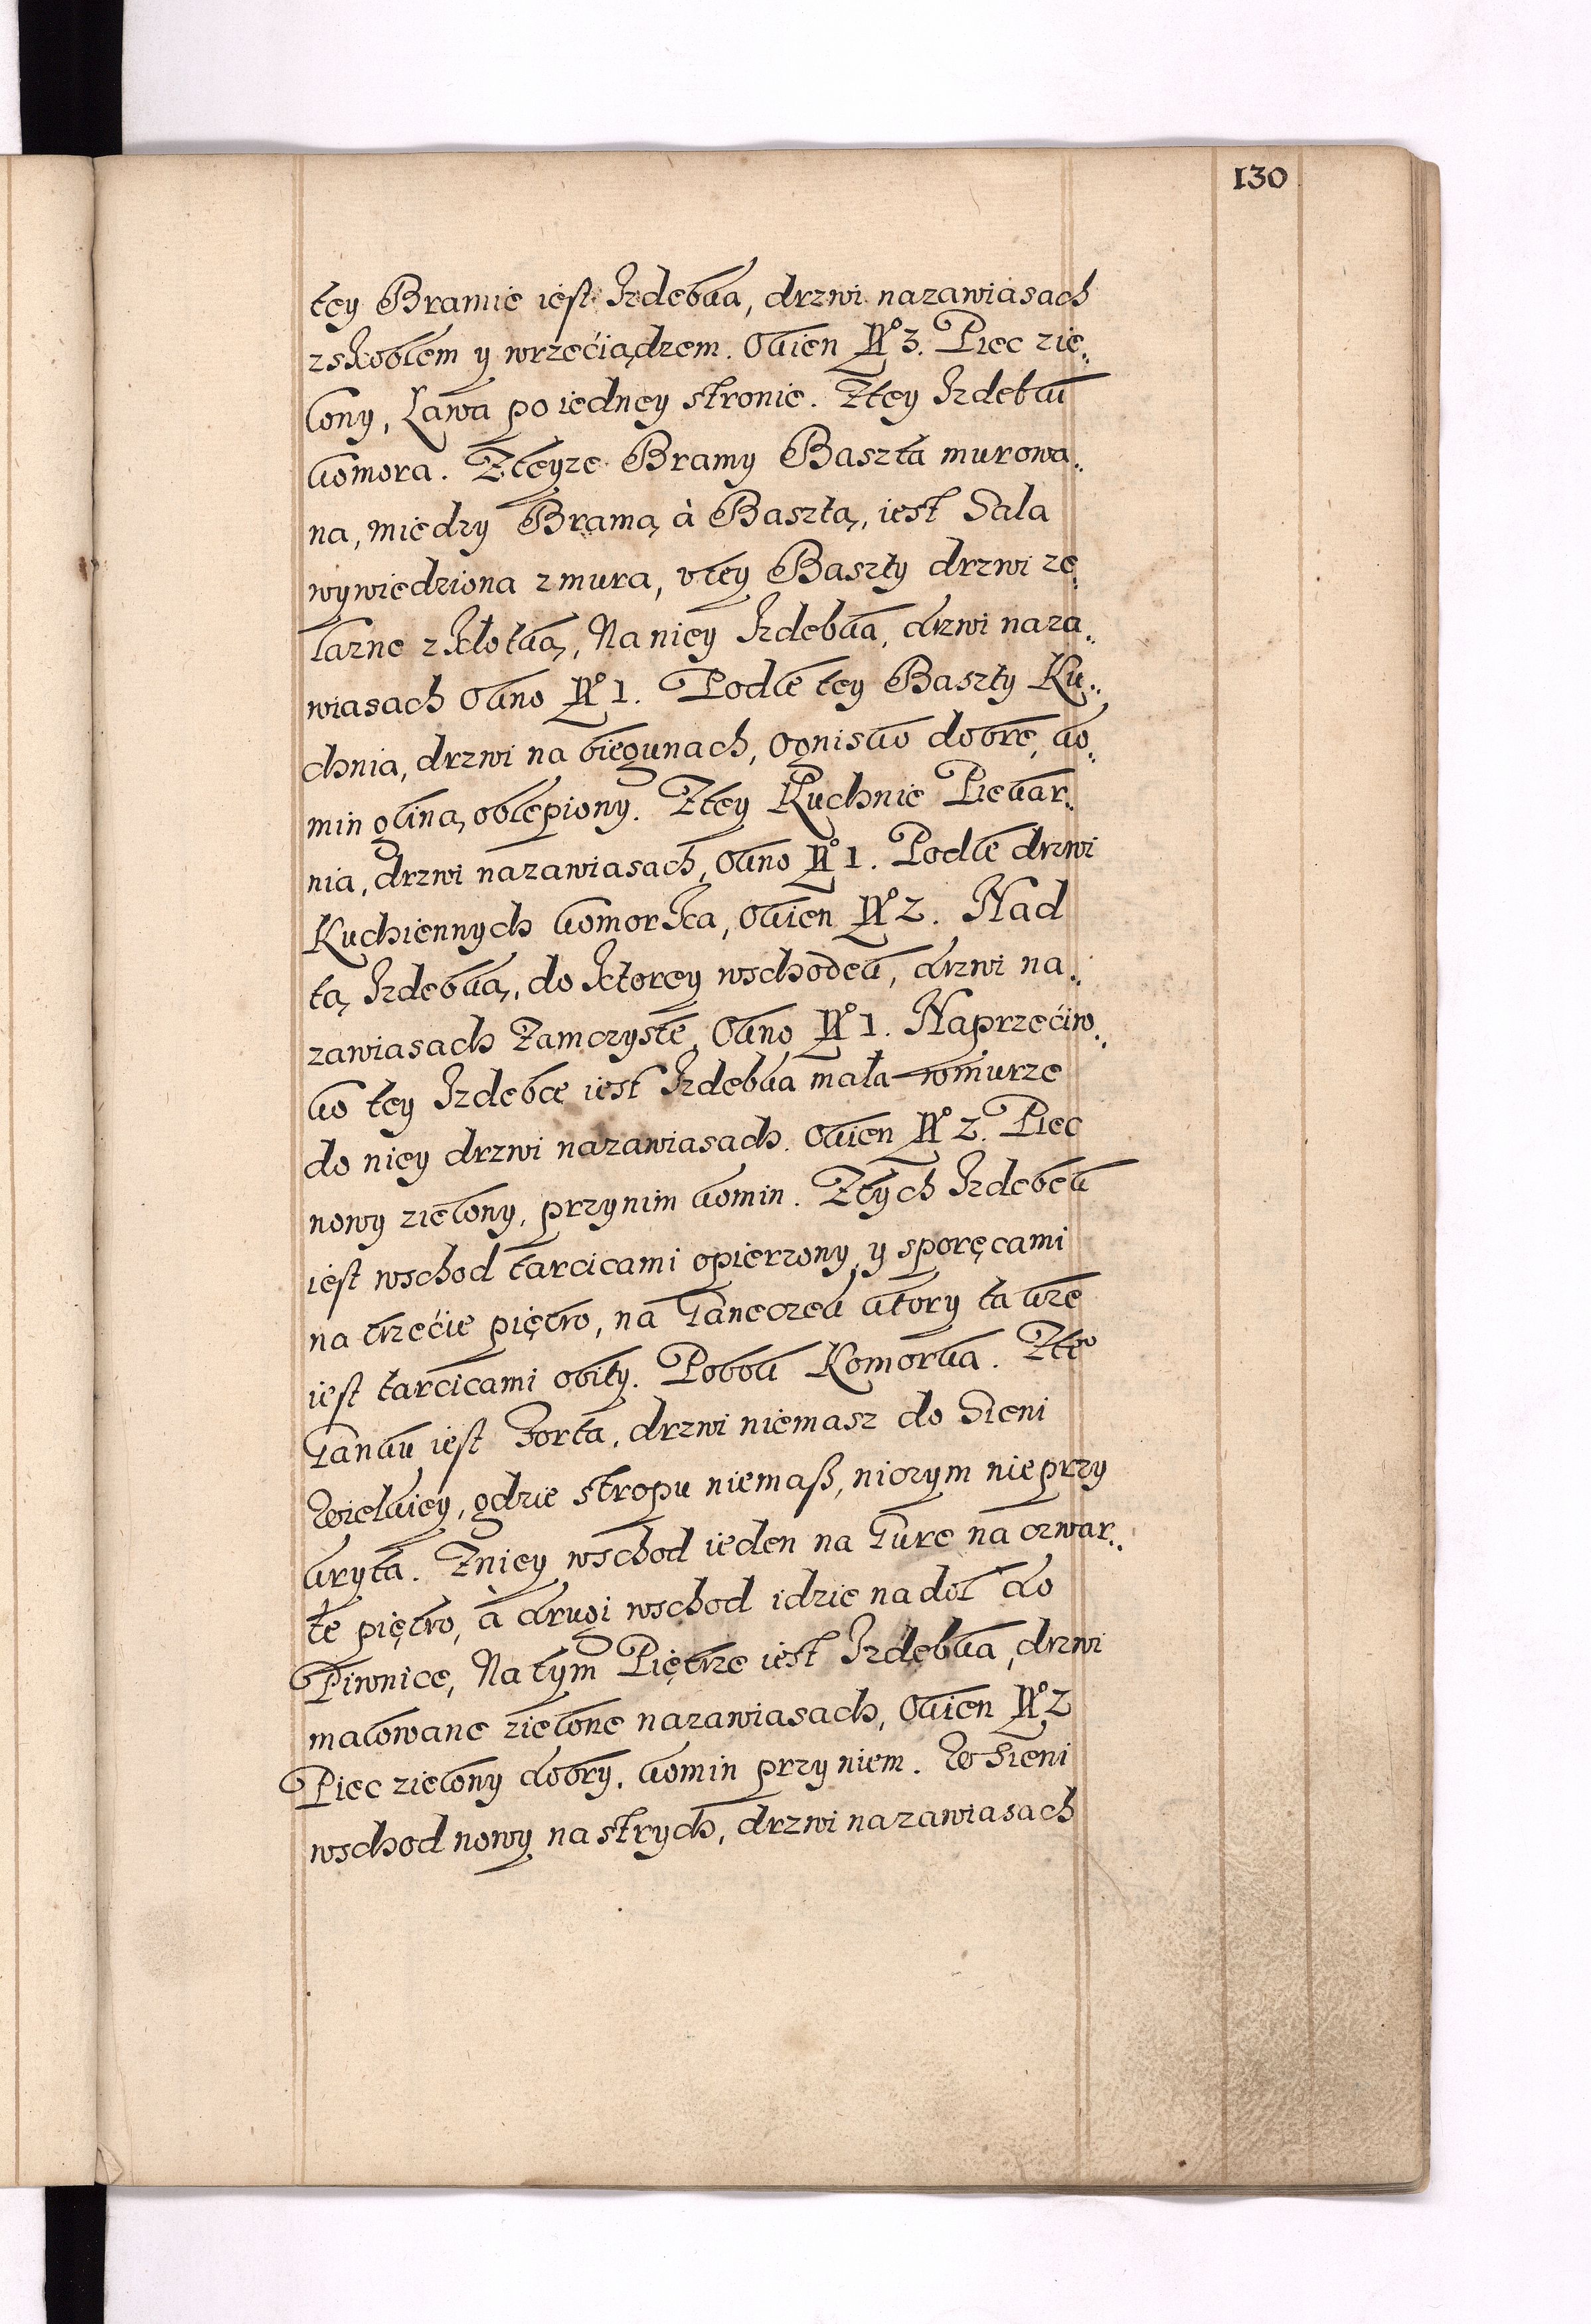 130
tey Bramie iest Izdebka, drzwi nazawiasach
zskoblem y wrzeciądzem. Okien No 3. Piec zie„
lony, Ława po iedney stronie. Ztey Izdebki
komora. Zteyze Bramy Baszta murowa„
na, miedzy Bramą à Basztą, iest Sala
wywiedziona zmura, vtey Baszty drzwi ze„
lazne zkłotką, Naniey Izdebka, drzwi naza„
wiasach Okno No 1. Podle tey Baszty Ku„
chnia, drzwi na biegunach, Ognisko dobre, ko„
min gliną oblepiony. Ztey Kuchnie Piekar„
nia, drzwi nazawiasach, Okno No 1. Podle drzwi
Kuchiennych komorka, Okien No 2. Nad
tą Izdebką, do ktorey wschodek, drzwi na„
zawiasach Zamczyste, Okno No 1. Naprzeciw„
ko tey Izdebce iest Izdebka mała wmurze
do niey drzwi nazawiasach. Okien No 2. Piec
nowy zielony, przynim komin. Ztych Izdebek
iest wschod tarcicami opierzony, y sporęcami
na trzecie piętro, na Ganeczek ktory takze
iest tarcicami obity. Pobok Komorka. Zte°
Ganku iest Forta, drzwi niemasz do Sieni
Wielkiey, gdzie stropu niemaß, niczym nieprzy
kryta. Zniey wschod ieden na Gure na czwar„
te piętro, à drugi wschod idzie nadoł do
Piwnice, Natym Piętrze iest Izdebka, drzwi
malowane zielone nazawiasach, Okien No 2
Piec zielony dobry, komin przy niem. W Sieni
wschod nowy nastrych, drzwi nazawiasach